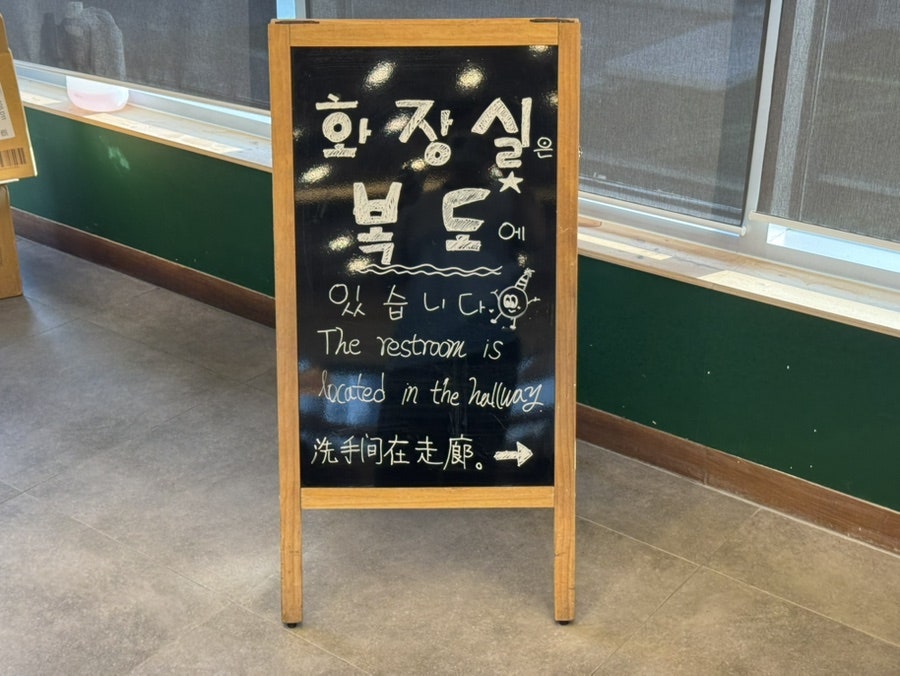 화장실은
복도에
있습니다.
The restroom is
located in the hallway.
洗手间在走廊。→